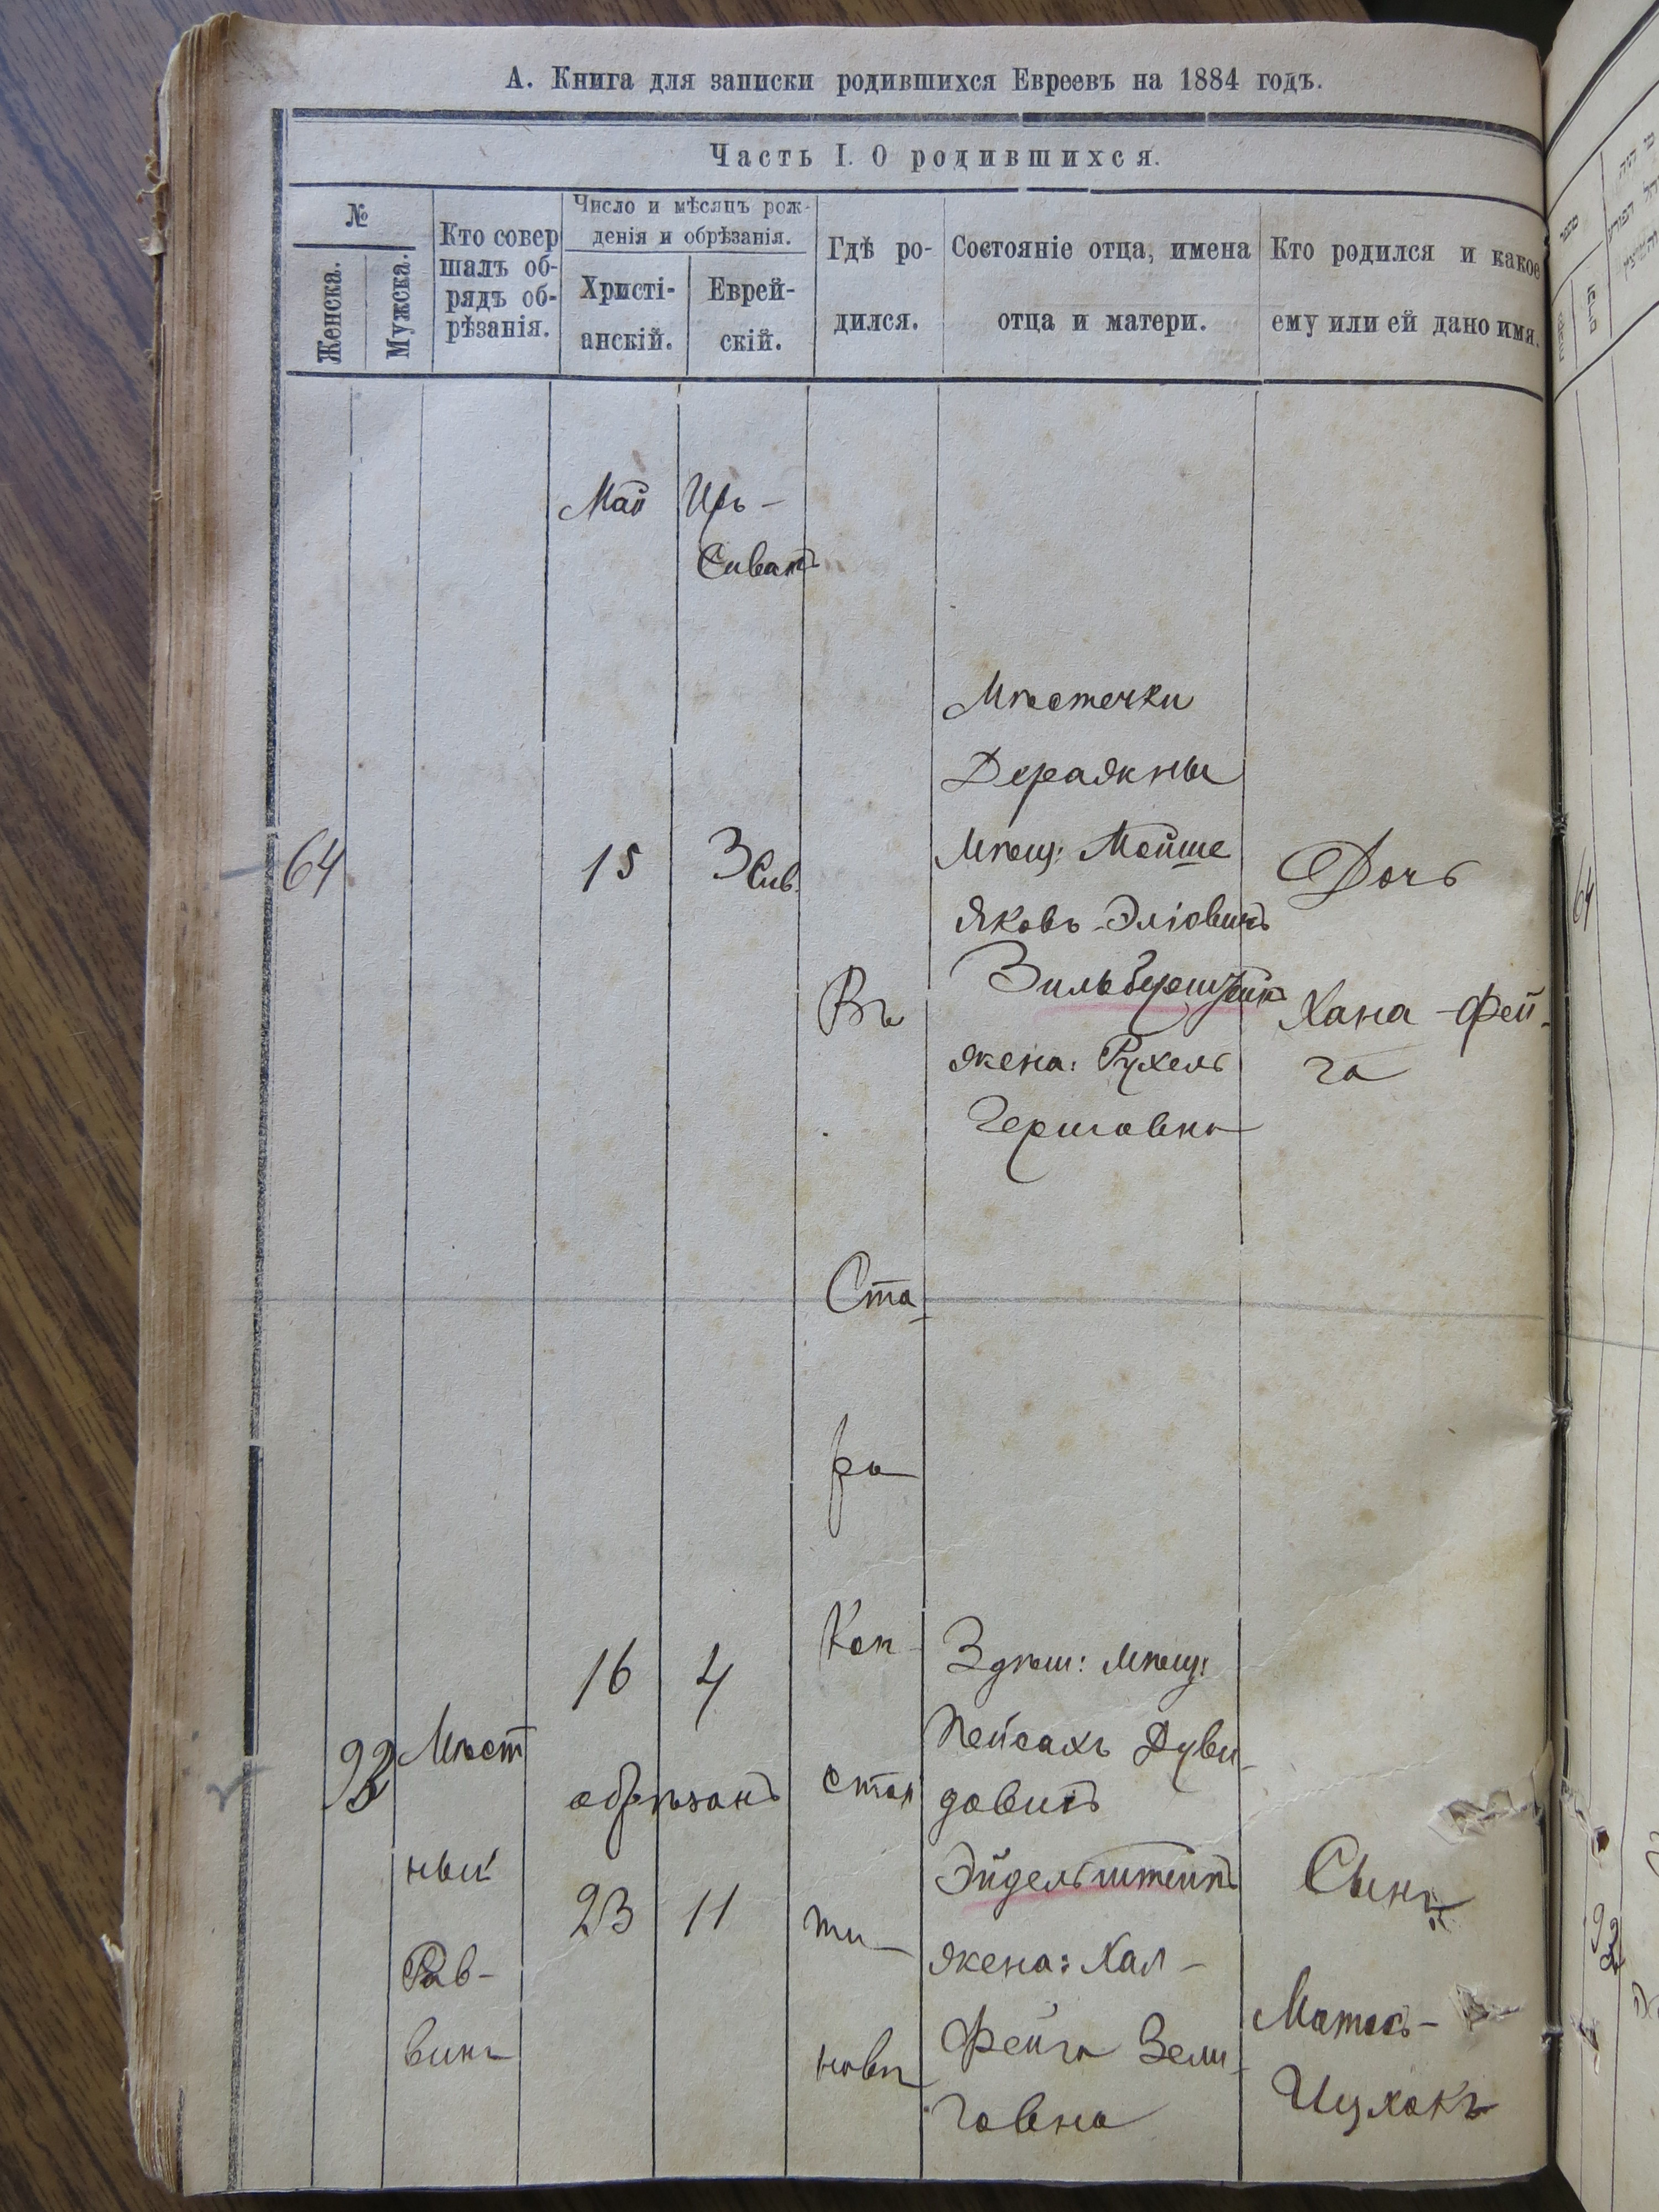 А. Книга для записки родившихся Евреевъ на 1884 годъ.
Часть I. О родившихся.
№
Женска.
Мужска.
Кто совер
шалъ об-
рядъ об-
рѣзанія.
Число и мѣсяцъ рож-
денія и обрѣзанія.
Христі-
анскій.
Еврей-
скій.
Гдѣ ро-
дился.
Состояніе отца, имена
отца и матери.
Кто родился и какое
ему или ей дано имя.
Май
Иръ -
Сиванъ
64
15
3 Сив.
Мѣстечки
Деражны
мѣщ: Мойше
Яковъ Эліовичъ
Зильберштейнъ
жена: Рухель
Гершовна
Дочь
Хана - Фей-
га
Въ
Ста-
ро
Кон-
стан
ти-
новѣ
92
Мѣст
ный
Рав-
винъ
16
4
обрѣзанъ
23
11
Здѣш: мѣщ:
Пейсахъ Дуви-
довичъ
Эйдельштейнъ
жена: Хая -
Фейга Зели-
говна
Сынъ
Матесъ -
Ицхокъ
64
92